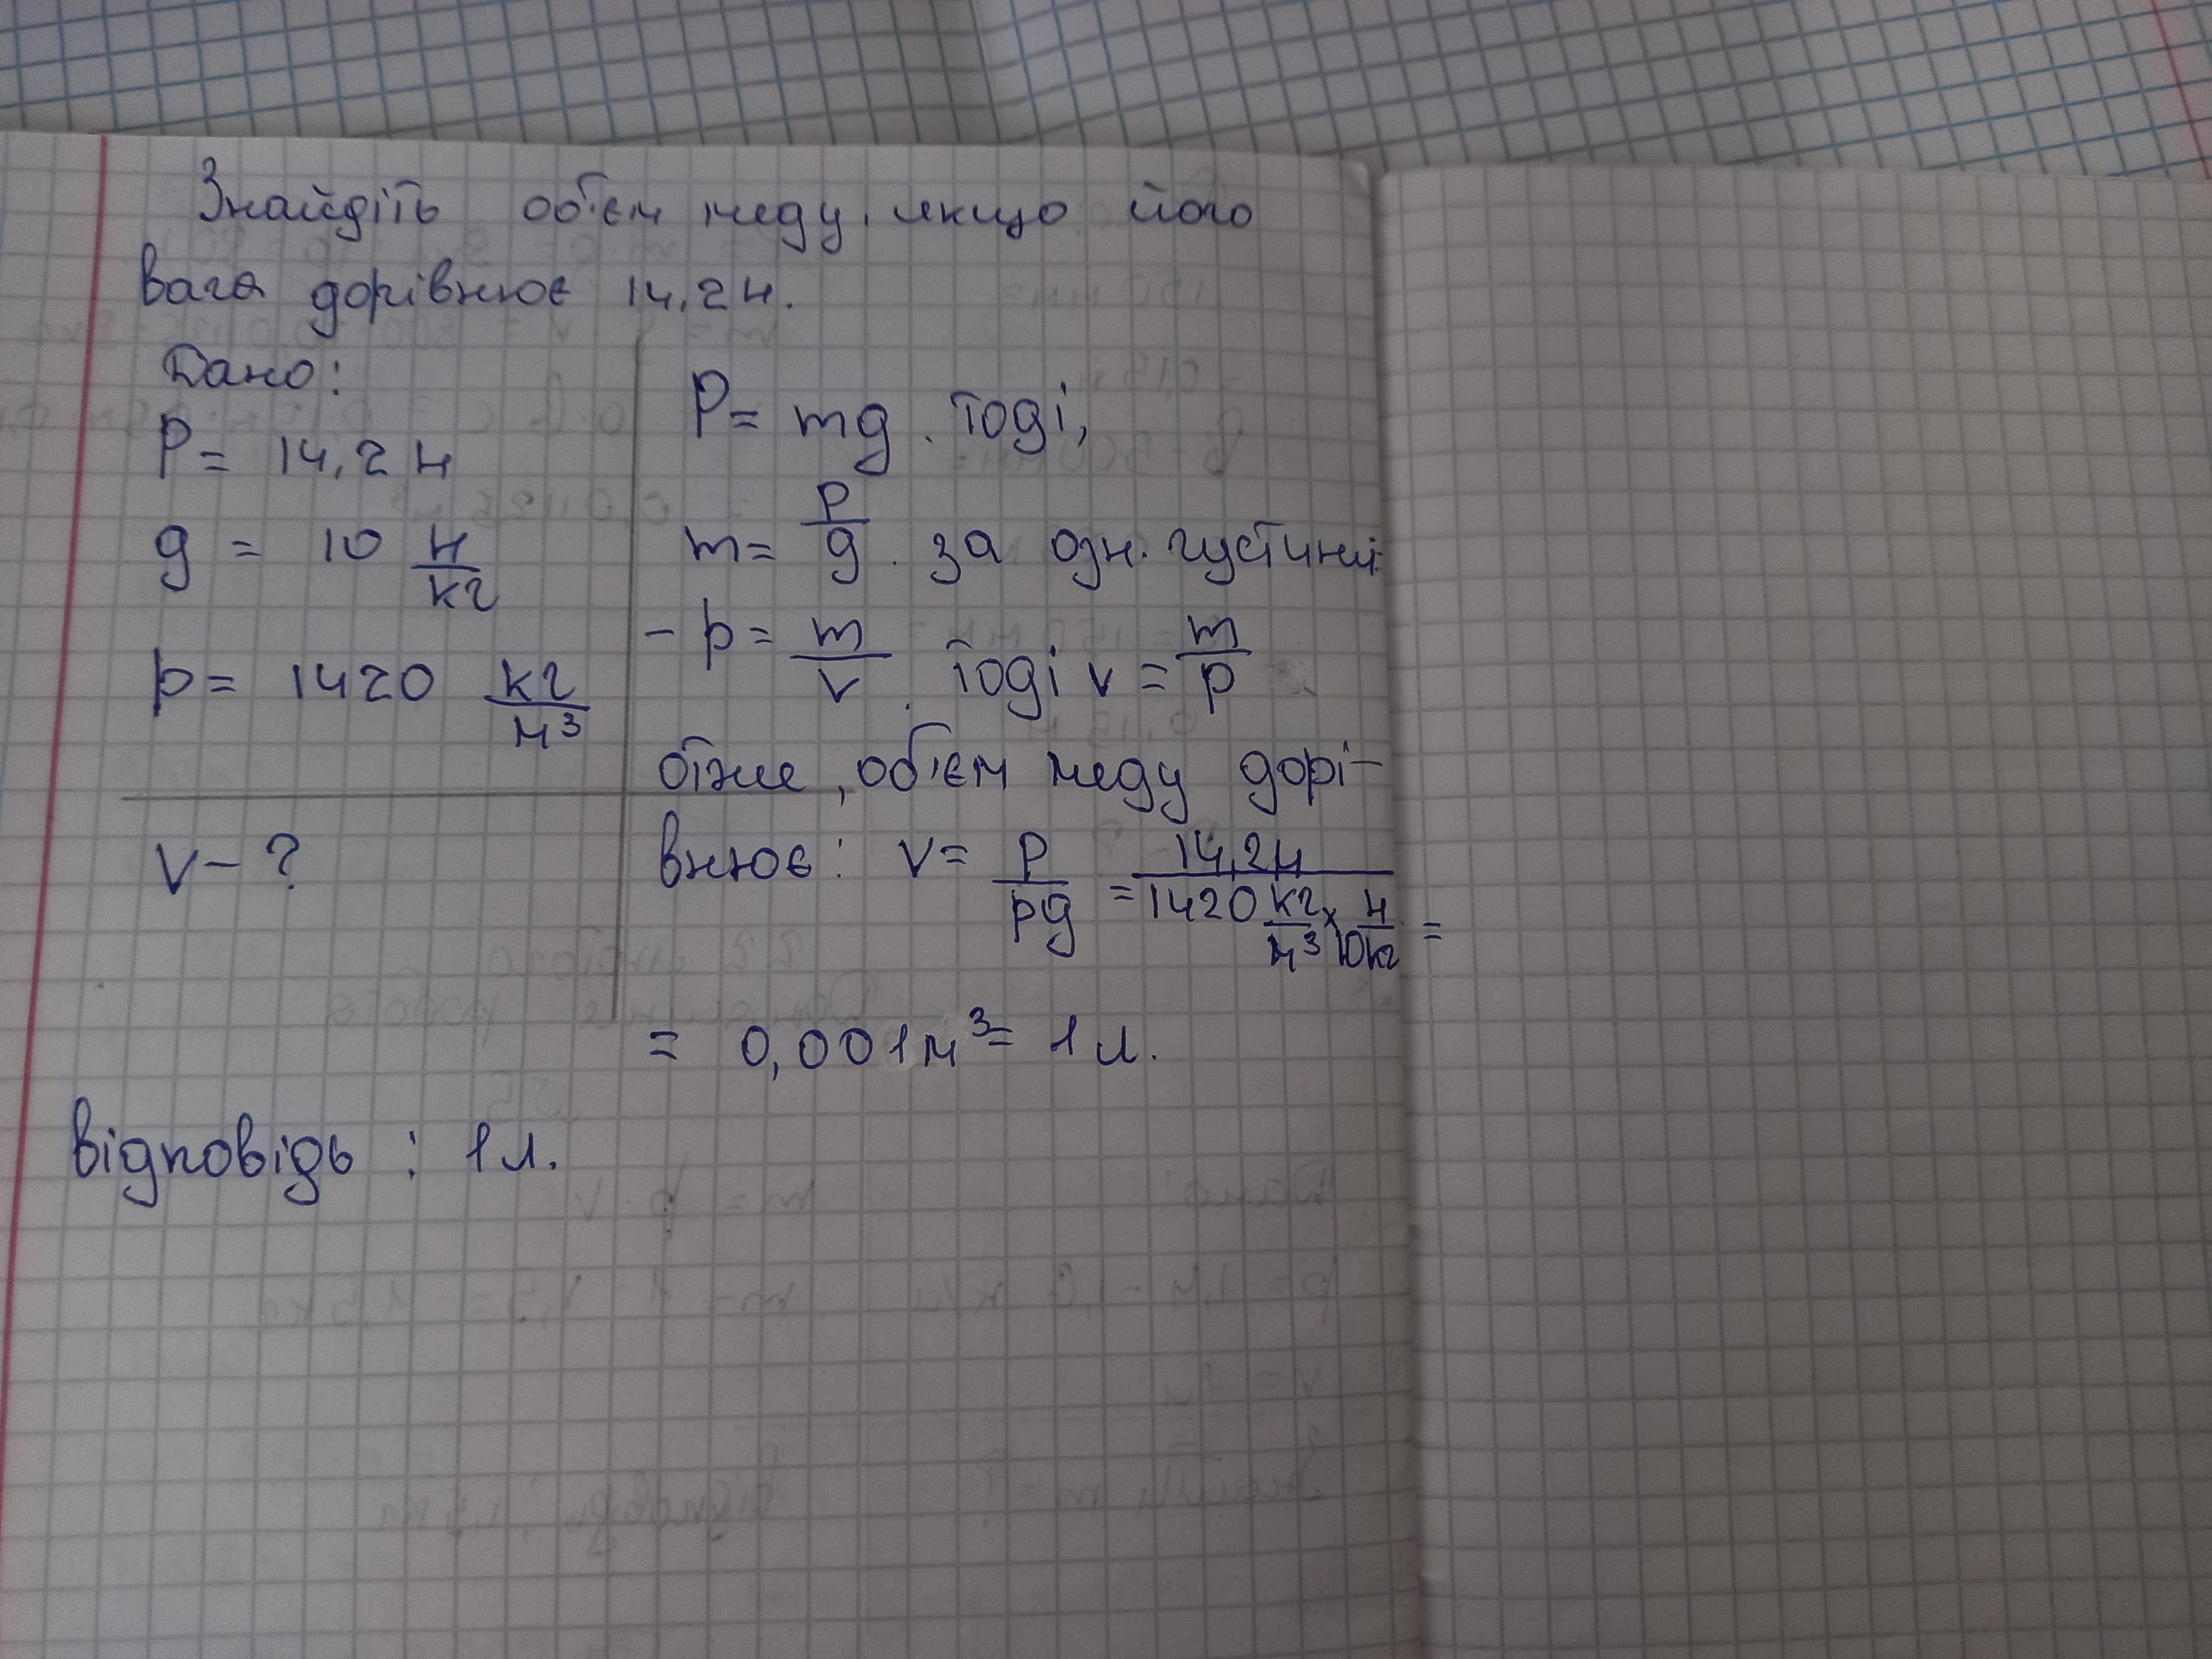 Знайдіть об'єм меду, якщо його
вага дорівнює 14,2 н.
Дано:
P = 14,2 н
g = 10 н/кг
p = 1420 кг/м³
v - ?
P = mg. тоді,
m = P/g. за озн. густини
- p = m/v. тоді v = m/p
отже, об'єм меду дорі-
внює: v = P/pg = 14,2н/1420 кг/м³ × 10 н/кг =
= 0,001 м³ = 1 л.
відповідь : 1 л.